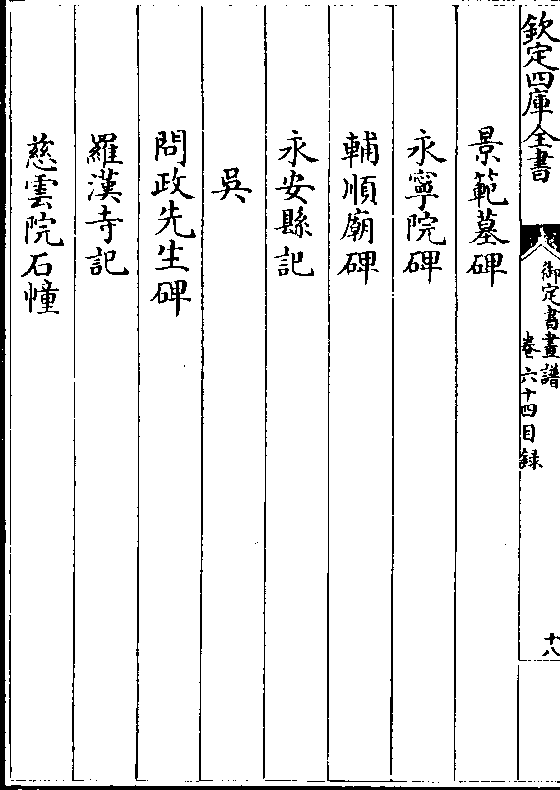 欽定四庫全書
御定書畫譜
卷六十四目録
十八
景範墓碑
永寧院碑
輔順廟碑
永安縣記
吳
問政先生碑
羅漢寺記
慈雲院石幢